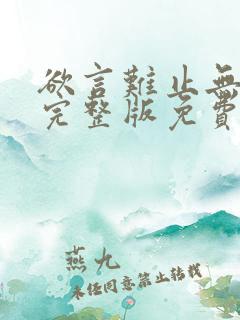 欲言難止無
完整版免費
燕九
未経同意禁止转载